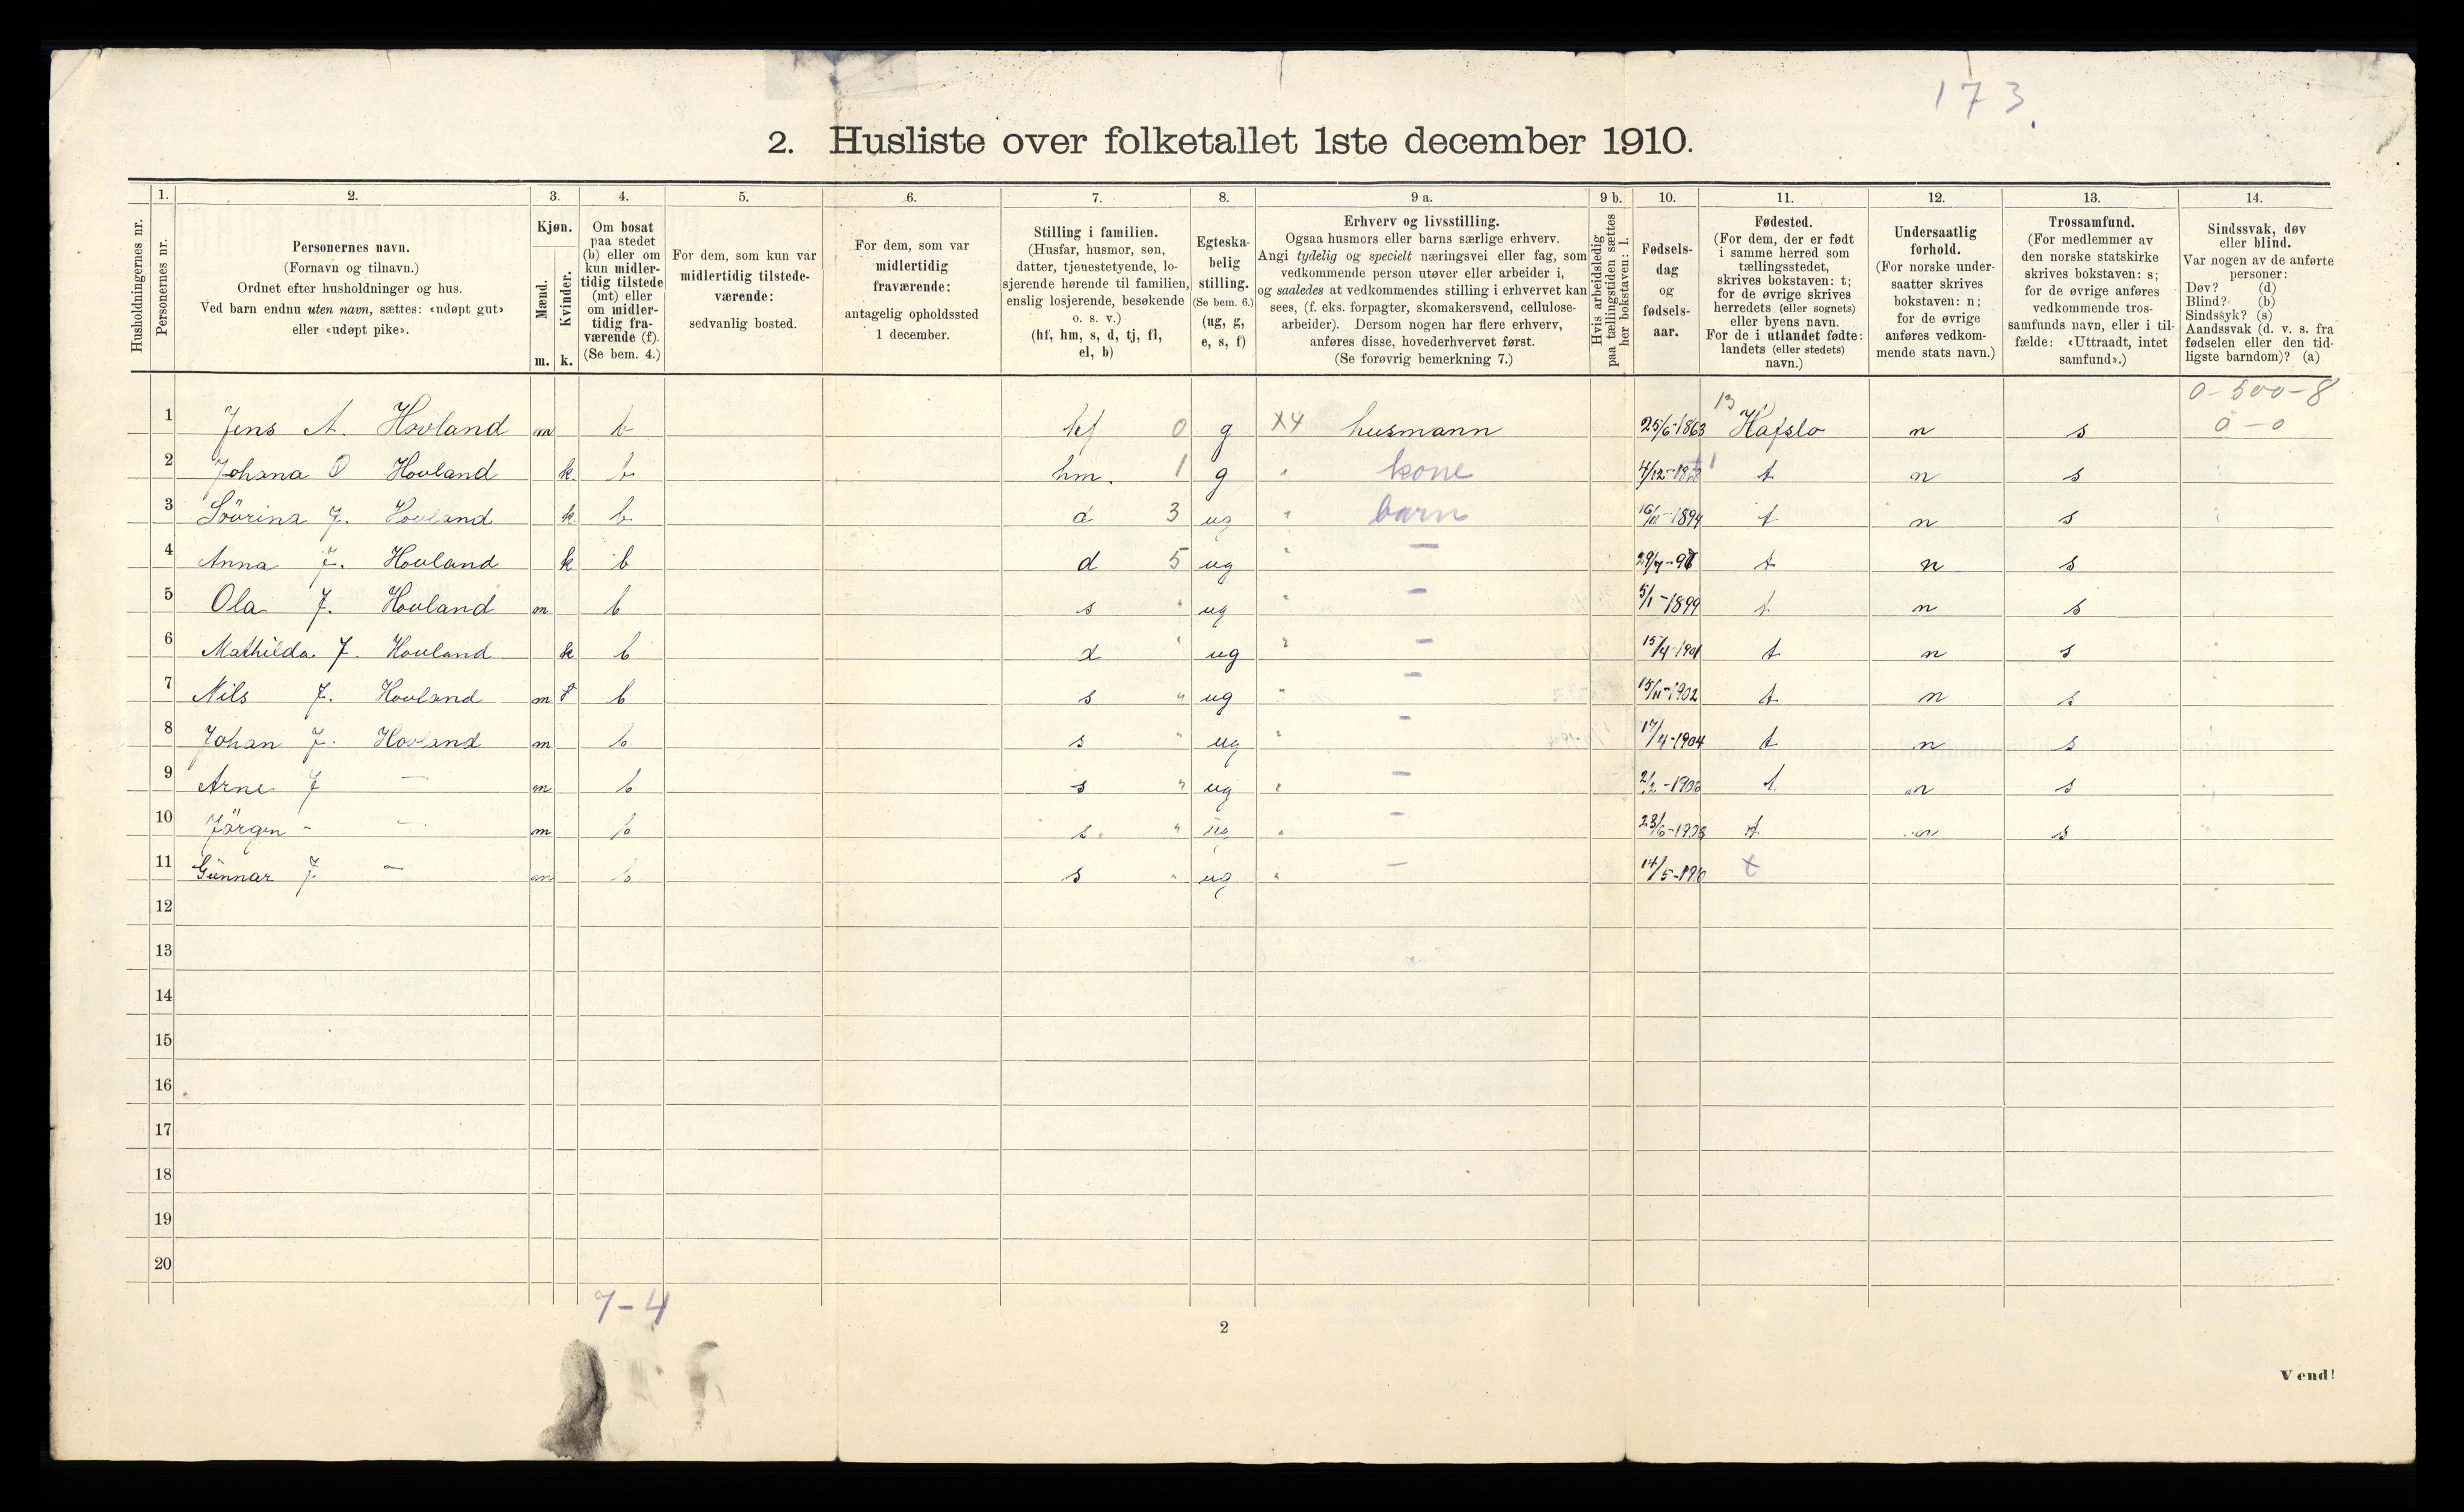 173.
2. Husliste over folketallet 1ste december 1910.
Husholdningernes nr.
1. Personernes nr.
2. Personernes navn. (Fornavn og tilnavn.) Ordnet efter husholdninger og hus. Ved barn endnu uten navn, sættes: «udøpt gut» eller «udøpt pike».
3. Kjøn. Mænd. m. Kvinder. k.
4. Om bosat paa stedet (b) eller om kun midler-tidig tilstede (mt) eller om midler-tidig fra-værende (f). (Se bem. 4.)
5. For dem, som kun var midlertidig tilstede-værende: sedvanlig bosted.
6. For dem, som var midlertidig fraværende: antagelig opholdssted 1 december.
7. Stilling i familien. (Husfar, husmor, søn, datter, tjenestetyende, lo-sjerende hørende til familien, enslig losjerende, besøkende o. s. v.) (hf, hm, s, d, tj, fl, el, b)
8. Egteska-belig stilling. (Se bem. 6.) (ug, g, e, s, f)
9 a. Erhverv og livsstilling. Ogsaa husmors eller barns særlige erhverv. Angi tydelig og specielt næringsvei eller fag, som vedkommende person utøver eller arbeider i, og saaledes at vedkommendes stilling i erhvervet kan sees, (f. eks. forpagter, skomakersvend, cellulose-arbeider). Dersom nogen har flere erhverv, anføres disse, hovederhvervet først. (Se forøvrig bemerkning 7.)
9 b. Hvis arbeidsledig paa tællingstiden sættes her bokstaven: l.
10. Fødsels-dag og fødsels-aar.
11. Fødested. (For dem, der er født i samme herred som tællingsstedet, skrives bokstaven: t; for de øvrige skrives herredets (eller sognets) eller byens navn. For de i utlandet fødte: landets (eller stedets) navn.)
12. Undersaatlig forhold. (For norske under-saatter skrives bokstaven: n; for de øvrige anføres vedkom-mende stats navn.)
13. Trossamfund. (For medlemmer av den norske statskirke skrives bokstaven: s; for de øvrige anføres vedkommende tros-samfunds navn, eller i til-fælde: «Uttraadt, intet samfund».)
14. Sindssvak, døv eller blind. Var nogen av de anførte personer: Døv? (d) Blind? (b) Sindssyk? (s) Aandssvak (d. v. s. fra fødselen eller den tid-ligste barndom)? (a)
0-500-8
1 Jens A. Hovland m b hf 0 g X4 husmann 25/6-1863 13 Hafslo n s 0-0
2 Johana O Hovland k. b hm. 1 g " kone 4/12- t n s
3 Sövrina J. Hovland k. b d 3 ug " barn 16/11-1894 t n s
4 Anna J. Hovland k b d 5 ug " — 29/7-97 t n s
5 Ola J. Hovland m b s " ug " — 5/1-1899 t n s
6 Mathilda J. Hovland k b d " ug " — 15/4-1901 t n s
7 Nils J. Hovland m b s " ug " — 15/11-1902 t n s
8 Johan J. Hovland m b s " ug " — 17/4-1904 t n s
9 Arne J — m b s " ug " — 2/2- t n s
10 Jörgen - — m b s. " ug " — 23/6-1908 t n s
11 Gunnar J — m b s " ug " — 14/5-1910 t
12
13
14
15
16
17
18
19
20
7-4
2
Vend!